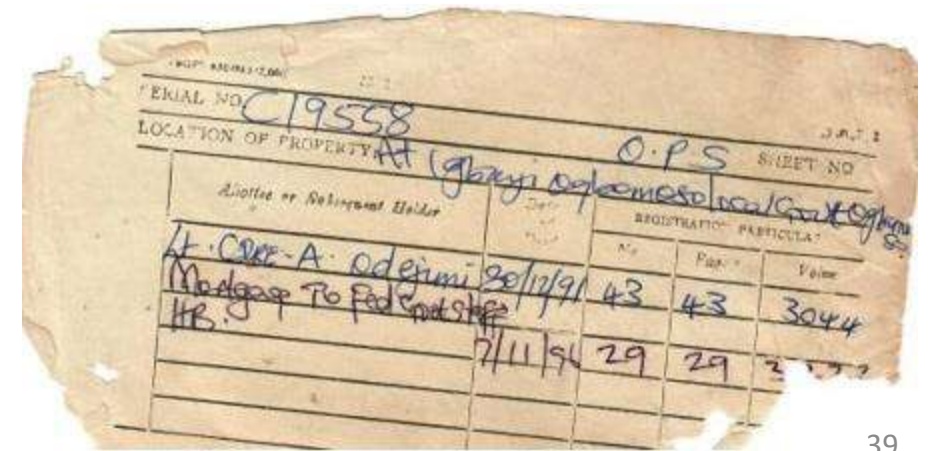 ERIAL NO. C19558
O.P.S SHEET NO
LOCATION OF PROPERTY At Igbayi Ogbomoso Local Govt
Allottee or Subsequent Holder
Date of
REGISTRATION PARTICULA
No. Page Volume
Lt. CDRE-A. Odejimi 30/12/91 43 43 3044
Mortgage To Fed Govt Staff
HB. 7/11/96 29 29
39